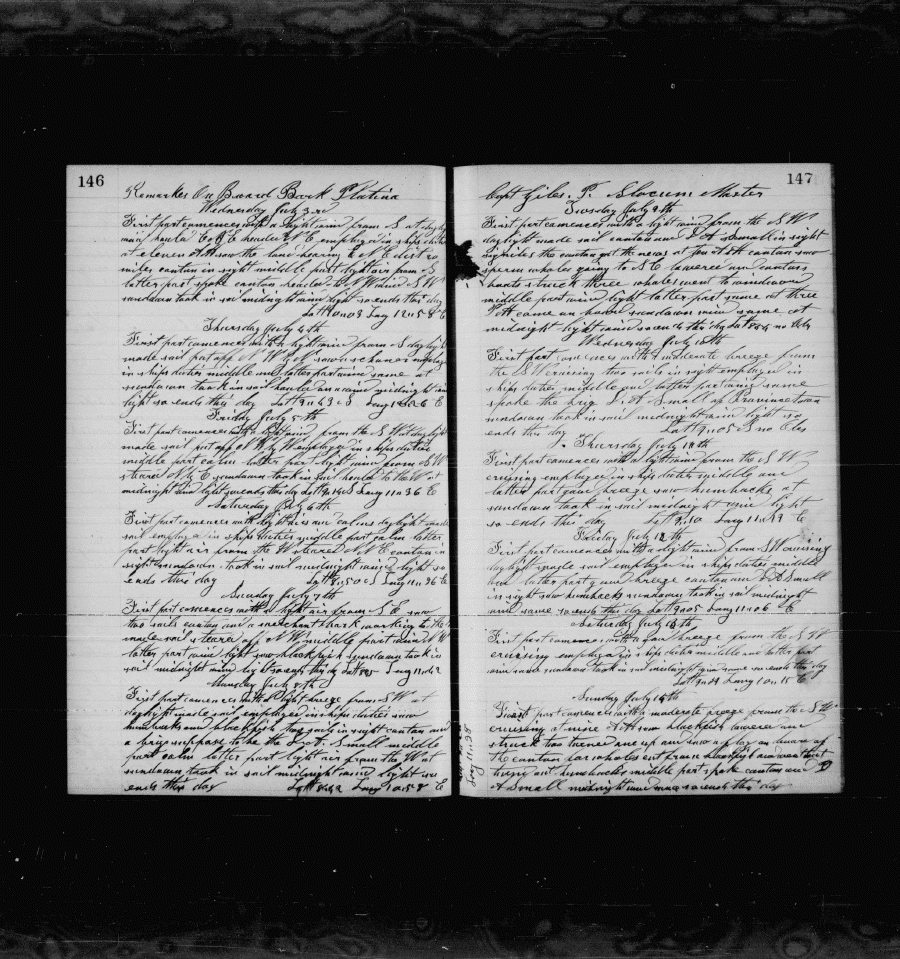 146
Remarkes On Board Bark Platina
Wednesday July 3rd
First part comences with a light wind from S at daylight
wind hauld to S E headed N E employed in ships duties
at eleven AM saw the land bearing E N E dist 20
miles canton in sight middle part light air from S
latter part spoke canton headed wind S W
sundown took in sail midnight wind light so ends this day
Latt 10 " 03 Long 12 " 58 E
Thursday July 4th
First part comences with a light wind from S daylight
made sail put off N W saw schoner employed
in ships duties middle and latter part wind same at
sundown took in sail midnight wind
light so ends this day Latt 9 " 43 S Long E
Friday July 5th
First part comences with a light wind from the S W at daylight
made sail put off W by W employed in ships duties
middle part calm latter part light wind from S W
steard N by E sundown took in sail headed to the W at
midnight wind light so ends this day Latt S Long 11 " 36 E
Saturday July 6th
First part comences with light airs and calms daylight made
sail employed in ships duties middle part calm latter
part light air from the W steared N N E canton in
sight sundown took in sail midnight wind light so
ends this day Latt 8 " 50 S Long 11 " 36 E
Sunday July 7th
First part comences with a light air from S E saw
two sails canton and a merchant bark working to the
made sail steard off N W middle part wind N W
latter part wind light saw blackfish sundown took in
sail midnight wind light so ends this day Latt Long 11 " 42
Munday July 8th
First part comences with a light breeze from S W at
daylight made sail employed in ships duties saw
humbacks and blackfish two sails in sight canton and
a brig suppose to be the F. A. Small middle
part calm latter part light air from the W at
sundown took in sail midnight wind light so
ends this day Latt 8 " 42 Long 10 " 58 E
147
Capt Giles. P. Slocum Master
Tuesday July 9th
First part comences with a light wind from the S W
daylight made sail canton and F A Small in sight
canton got the news at Ten AM canton saw
sperm whales going to S E lowered and cantons
boats struck three whales went to windward
middle part wind light latter part same at three
PM came on board sundown wind same at
midnight light wind so ends this day Latt no Obs
Wednesday July 10th
First part comences with moderate breeze from
the S W cruising two sails in sight employed in
ships duties middle and latter part wind same
spoke the brig F. A Small of Provincetown
sundown took in sail midnight wind light so
ends this day Latt 9 " 05 S no Obs
Thursday July 11th
First part comences with a light wind from the S W
cruising employed in ships duties middle and
latter part good breeze saw humbacks at
sundown took in sail midnight wind light
so ends this day Latt 9 " 10 Long 11 " 29 E
Friday July 12th
First part comences with a light wind from S W cruising
daylight made sail employed in ships duties middle
and latter part good breeze canton and F A Small
in sight saw humbacks sundown took in sail midnight
wind same so ends this day Latt 9 " 05 Long 11 " 06 E
Saturday July 13th
First part comences with a good breeze from the S W
cruising employed in ships duties middle and latter part
wind same sundown took in sail midnight wind same so ends this day
Latt 9 " 04 Long 10 " 15 E
Sunday July 14th
First part comences with moderate breeze from the S W
cruising at nine AM saw blackfish lowered and
struck two
the canton
and humbacks middle part spoke canton and F
A Small midnight wind same so ends this day